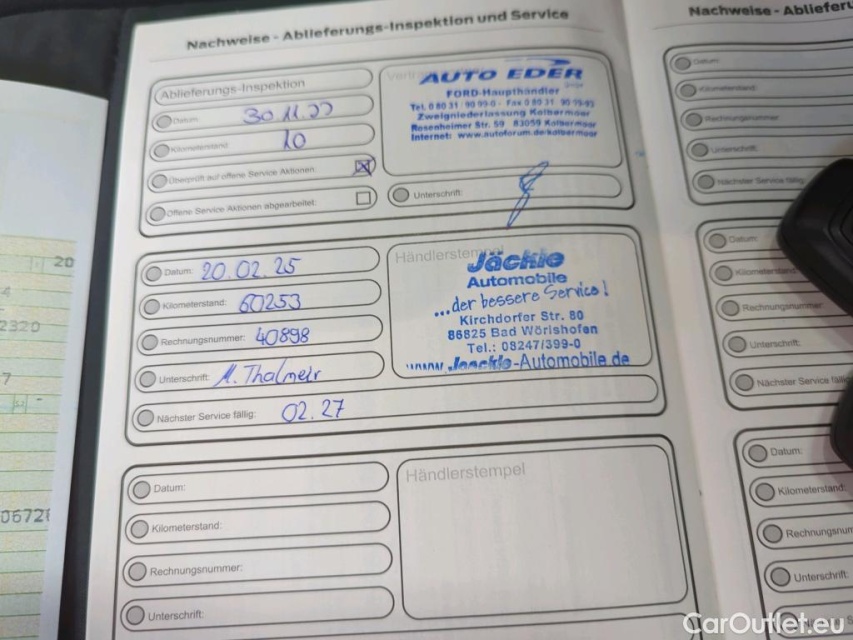 Nachweise - Ablieferungs-Inspektion und Service
Ablieferungs-Inspektion
Datum: 30.11.22
Kilometerstand: 10
Überprüft auf offene Service Aktionen:
Offene Service Aktionen abgearbeitet:
AUTO EDER
FORD-Haupthändler
Tel. 0 80 31 / 90 99-0 · Fax 0 80 31
Zweigniederlassung Kolbermoor
Rosenheimer Str. 59 83059 Kolbermoor
Internet: www.autoforum.de/kolbermoor
Unterschrift:
Datum: 20.02.25
Kilometerstand: 60253
Rechnungsnummer: 40898
Unterschrift: M. Thalmeir
Nächster Service fällig: 02.27
Händlerstempel
Jäckle
Automobile
...der bessere Service!
Kirchdorfer Str. 80
86825 Bad Wörishofen
Tel.: 08247/399-0
www.Jaeckle-Automobile.de
Datum:
Kilometerstand:
Rechnungsnummer:
Unterschrift:
Händlerstempel
Nachweise - Ablieferu
Datum:
Kilometerstand:
Rechnungsnummer:
Unterschrift:
Nächster Service fällig
Datum:
Kilometerstand
Rechnungsnumm
Unterschrift:
Nächster Service fälli
Datum:
Kilometerstand:
Rechnungsnum
Unterschrift:
20
4
2320
7
06726
CarOutlet.eu